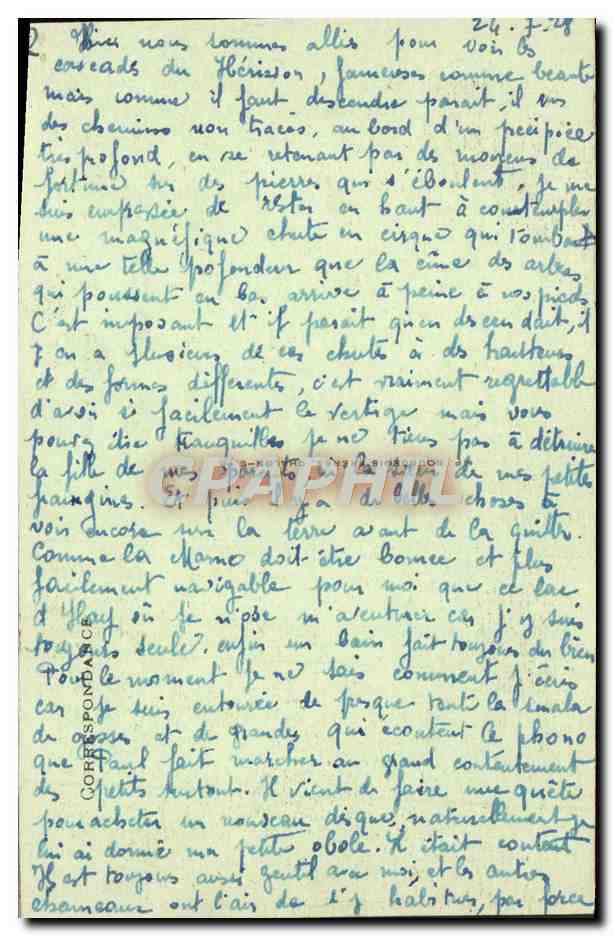 2 24.7.28
Hier nous sommes allés pour voir les
cascades du Hérisson, fameuses comme beauté
mais comme il faut descendre parait, il
des chemins non tracés, au bord d'un précipice
très profond, en se retenant par des moyens de
fortune sur des pierres qui s'éboulent, je me
suis empressée de rester en haut à contempler
une magnéfique chute en cirque qui tombait
à une telle profondeur que la cîme des arbres
qui poussent en bas arrive à peine à nos pieds
C'est imposant et il parait qu'en descendait, il
y en a plusieurs de ces chutes à des hauteurs
et des formes différentes, c'est vraiment regrettable
d'avoir si facilement le vertige mais vous
pouvez être tranquilles je ne tiens pas à détruire
la fille de mes parents ni la de mes petites
frangines. Et puis il y a de belles choses à
voir encore sur la terre avant de la quitter.
Comme la Marne doit être bonne et plus
facilement navigable pour moi que ce lac
d'Ilay où je n'ose m'aventurer car j'y suis
toujours seule. enfin un bain fait toujours du bien
Pour le moment je ne sais comment j'écris
car je suis entourée de presque toute la smala
de gosses et de grandes qui écoutent le phono
que Paul fait marcher au grand contentement
des petits surtout. Il vient de faire une quête
pour acheter un nouveau disque, naturellement je
lui ai donné ma petite obole. Il était content
Il est toujours aussi gentil avec moi, et les autres
chameaux ont l'air de s'y habituer, par force
CORRESPONDANCE
CPAPHIL